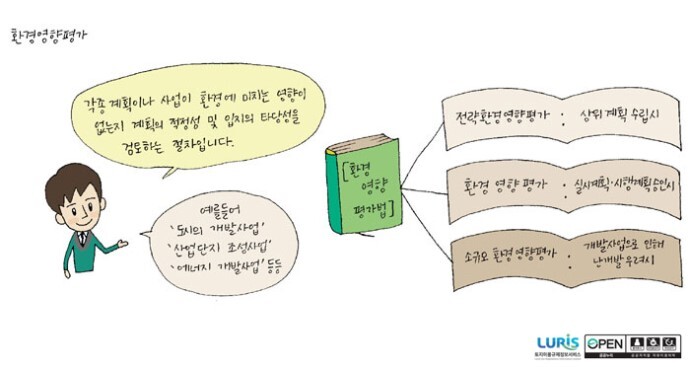 환경영향평가
각종 계획이나 사업이 환경에 미치는 영향이
없는지 계획의 적정성 및 입지의 타당성을
검토하는 절차입니다.
예를들어
'도시의 개발사업'
'산업단지 조성사업'
'에너지 개발사업' 등등
[환경
영향
평가법]
전략환경영향평가 : 상위계획 수립시
환경 영향평가 : 실시계획·시행계획승인시
소규모 환경영향평가 : 개발사업으로 인해
난개발 우려시
LURIS
토지이용규제정보서비스
OPEN
공공누리